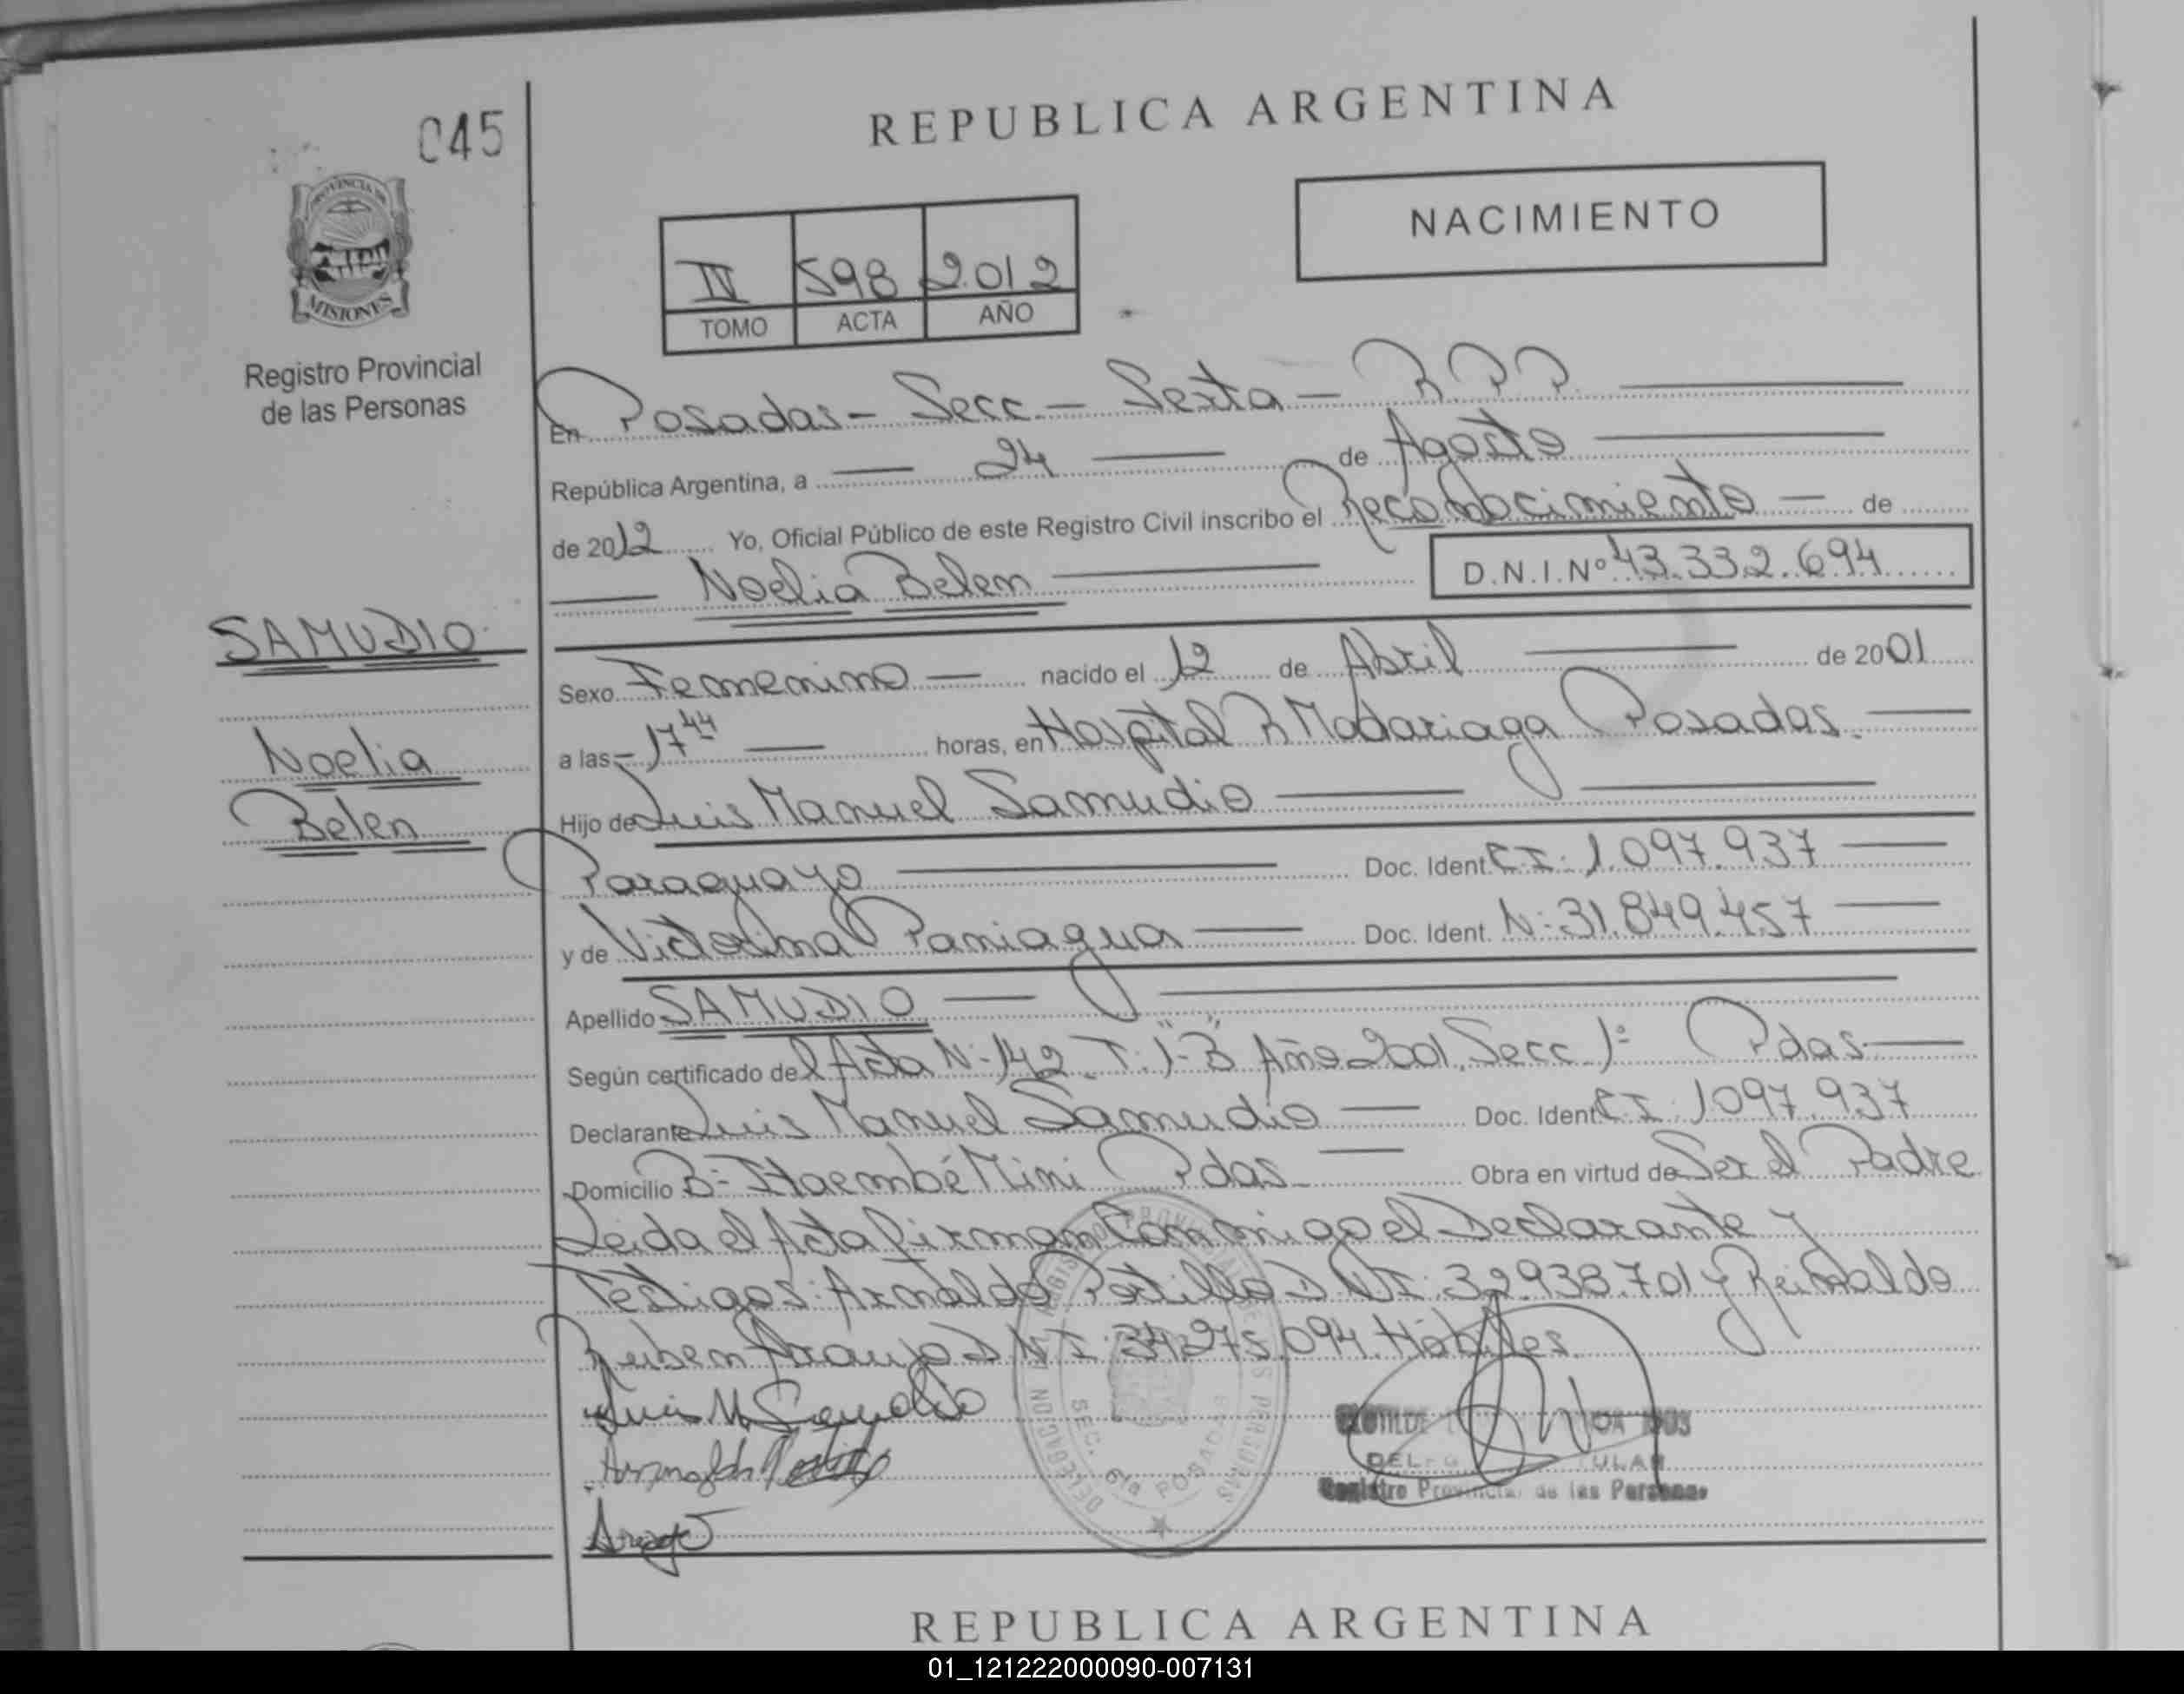 045
REPUBLICA ARGENTINA
PROVINCIA DE
MISIONES
Registro Provincial
de las Personas
NACIMIENTO
IV 598 2.012
TOMO ACTA AÑO
En Posadas - Secc - Sexta - R.P.P.
República Argentina, a 24 de Agosto
de 2012 Yo, Oficial Público de este Registro Civil inscribo el Reconocimiento de
Noelia Belen D.N.I.Nº 43.332.694
SAMUDIO
Noelia
Belen
Sexo Femenino nacido el 12 de Abril de 2001
a las 17 44 horas, en Hospital R Madariaga Posadas.
Hijo de Luis Manuel Samudio
Paraguayo Doc. Ident. C.I: 1.097.937
y de Victorina Paniagua Doc. Ident. N: 31.849.457
Apellido SAMUDIO
Según certificado del Acta N: 142 T: 1-"B" Año 2001, Secc 1: Pdas
Declarante Luis Manuel Samudio Doc. Ident. C I: 1097.937
Domicilio B: Itaembé Mini Pdas Obra en virtud de Ser el Padre
Leida el Acta firman Conmigo el Declarante y
Testigos: Arnaldo Portillo D N I: 32.938.701 y Reinaldo
Ruben Araujo D N I: 34.275.094. Hábiles.
Luis M Samudio
DELEGACION
SEC. 6ta POSADAS
Registro Provincial de las Personas
REPUBLICA ARGENTINA
01_121222000090-007131